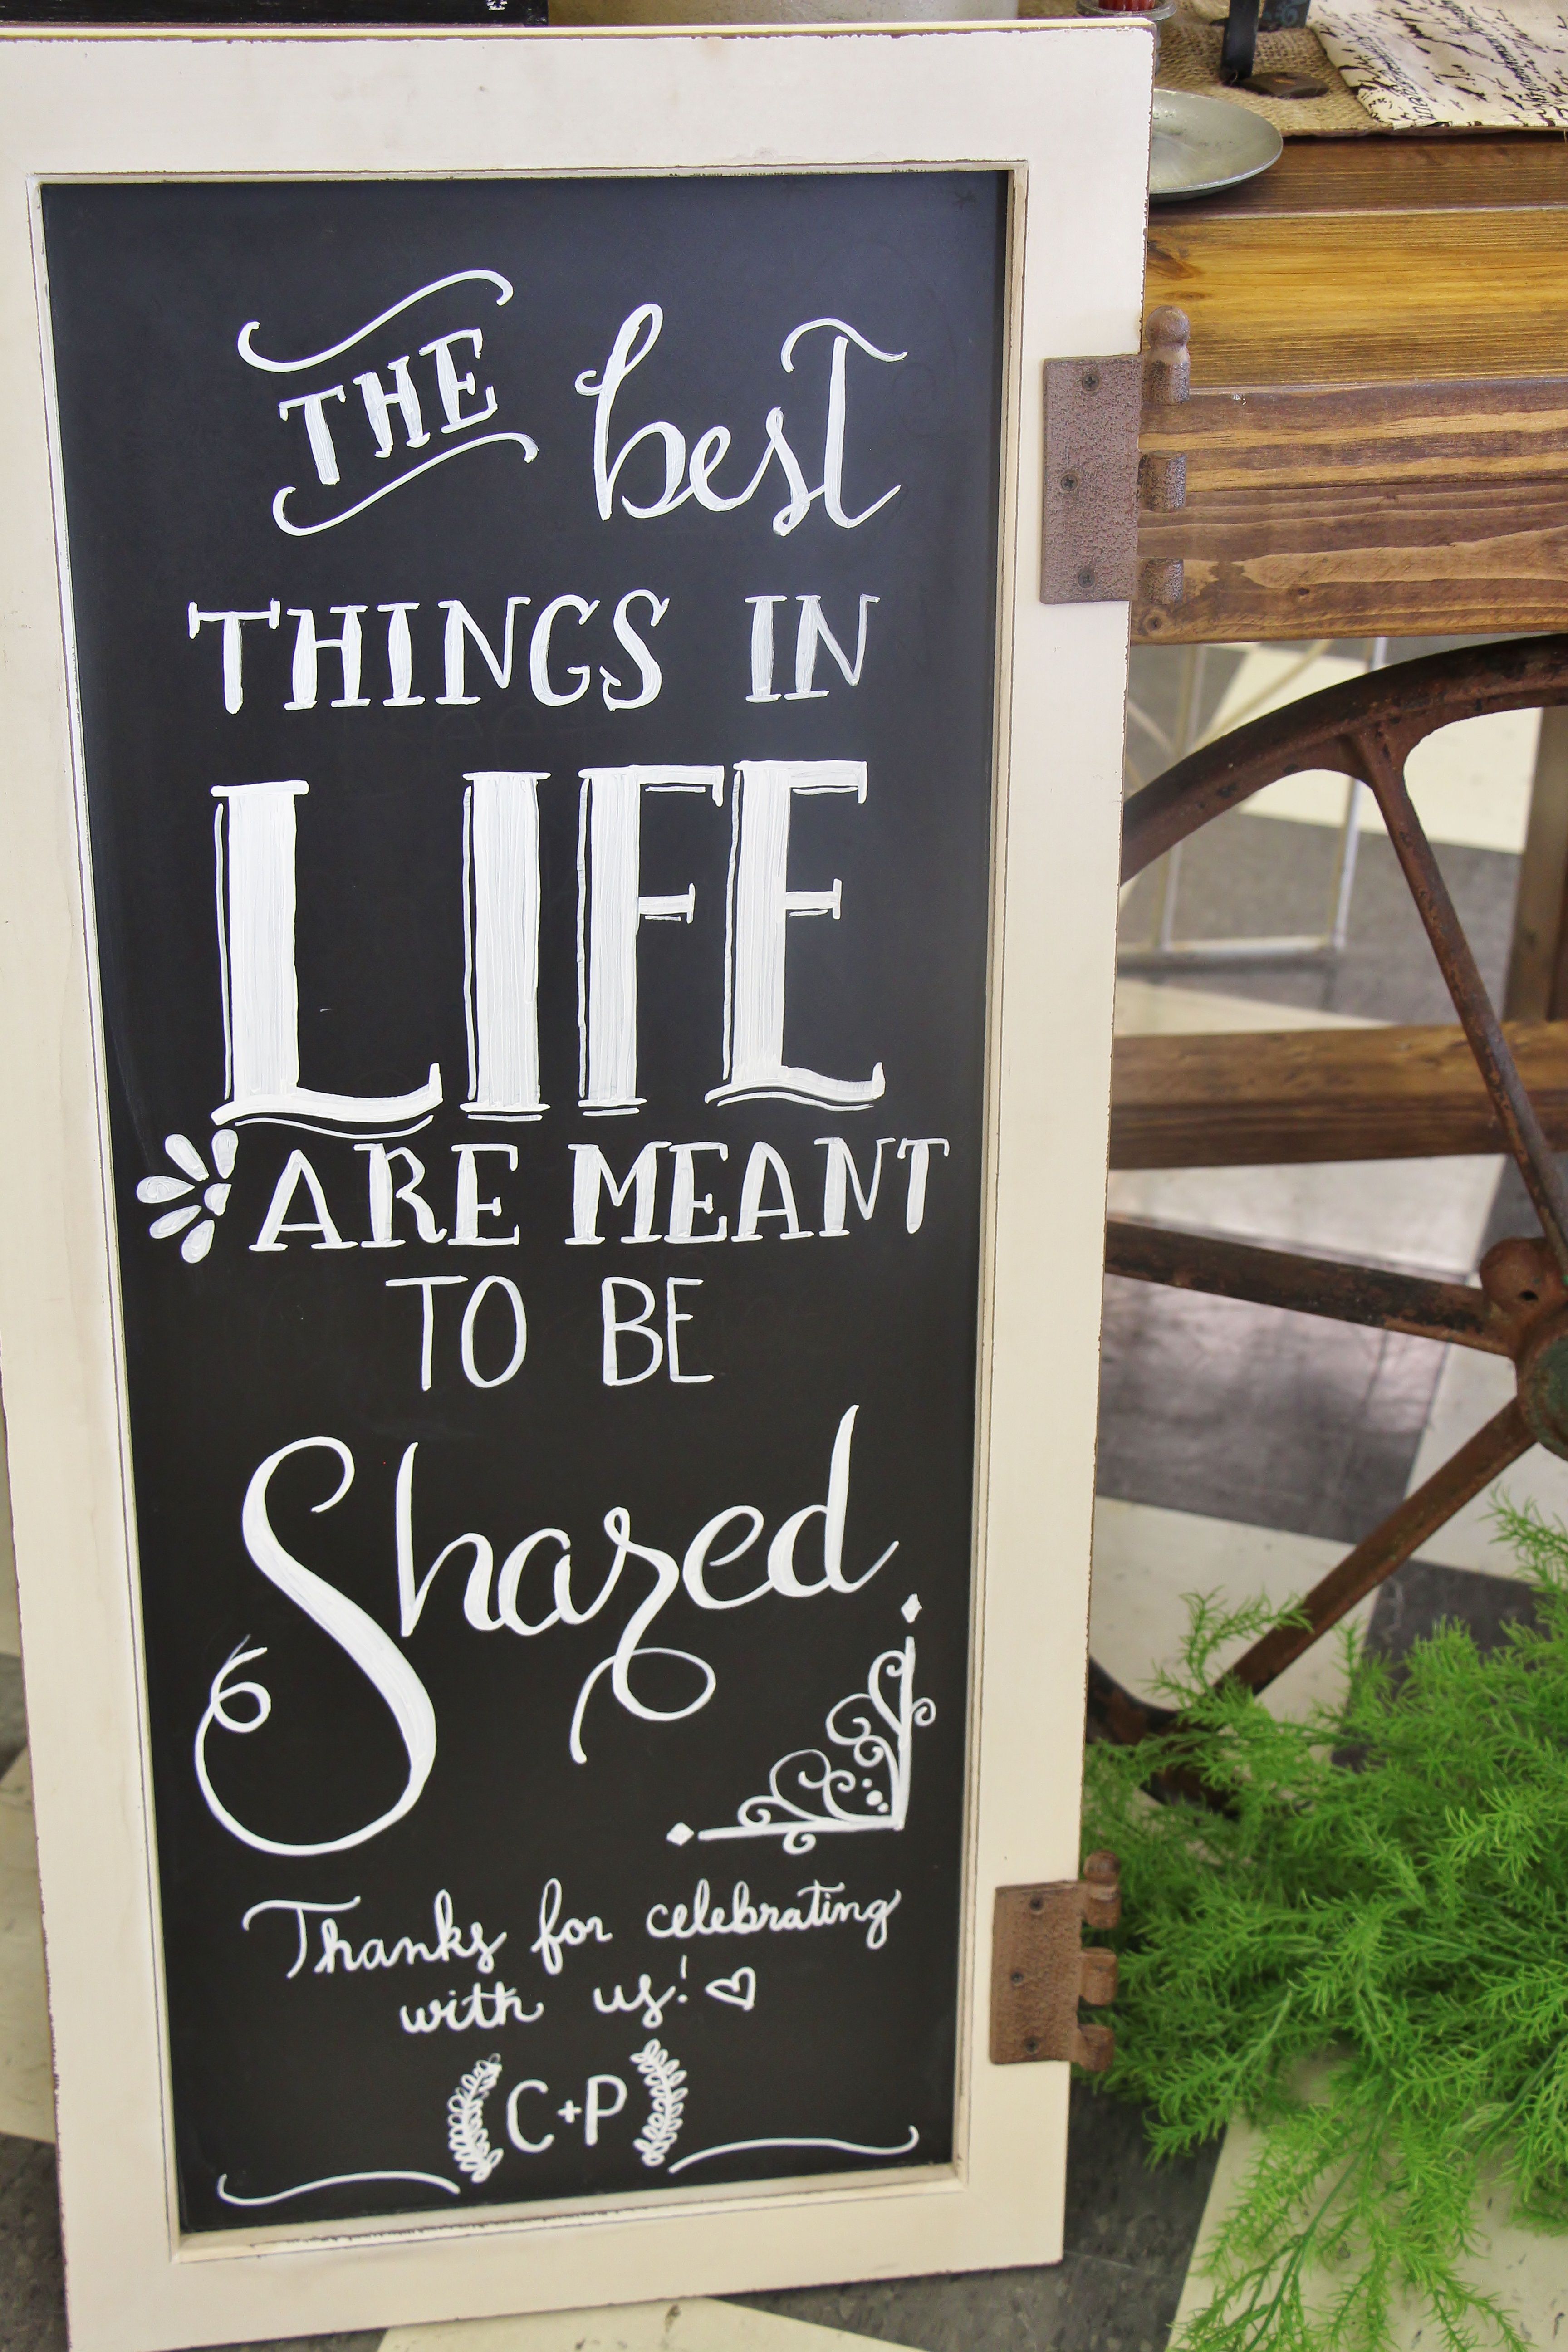 THE best
THINGS IN
LIFE
ARE MEANT
TO BE
Shared
Thanks for celebrating
with us! ♡
C+P